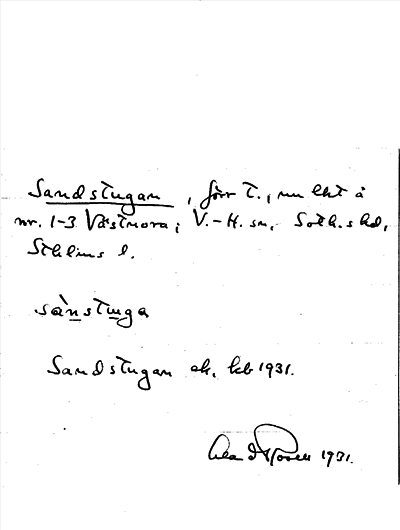 Sandstugan, förr t., nu lht å
nr. 1-3 Västnora; V.-H. sn, Soth. skd,
Sthlms l.
sànstuga
Sandstugan ek. kb 1931.
1931.